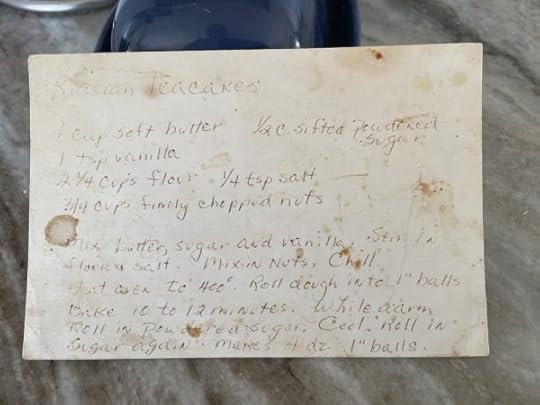 Russian Teacakes
1 cup soft butter 1/2 c. sifted powdered sugar
1 tsp vanilla
2 1/4 cups flour 1/4 tsp salt
3/4 cups finely chopped nuts
Mix butter, sugar and vanilla. Stir in
flour & salt. Mix in Nuts. Chill
Heat oven to 400° Roll dough into 1" balls
Bake 10 to 12 minutes. While warm
Roll in powdered sugar. Cool. Roll in
sugar again. Makes 4 dz 1" balls.